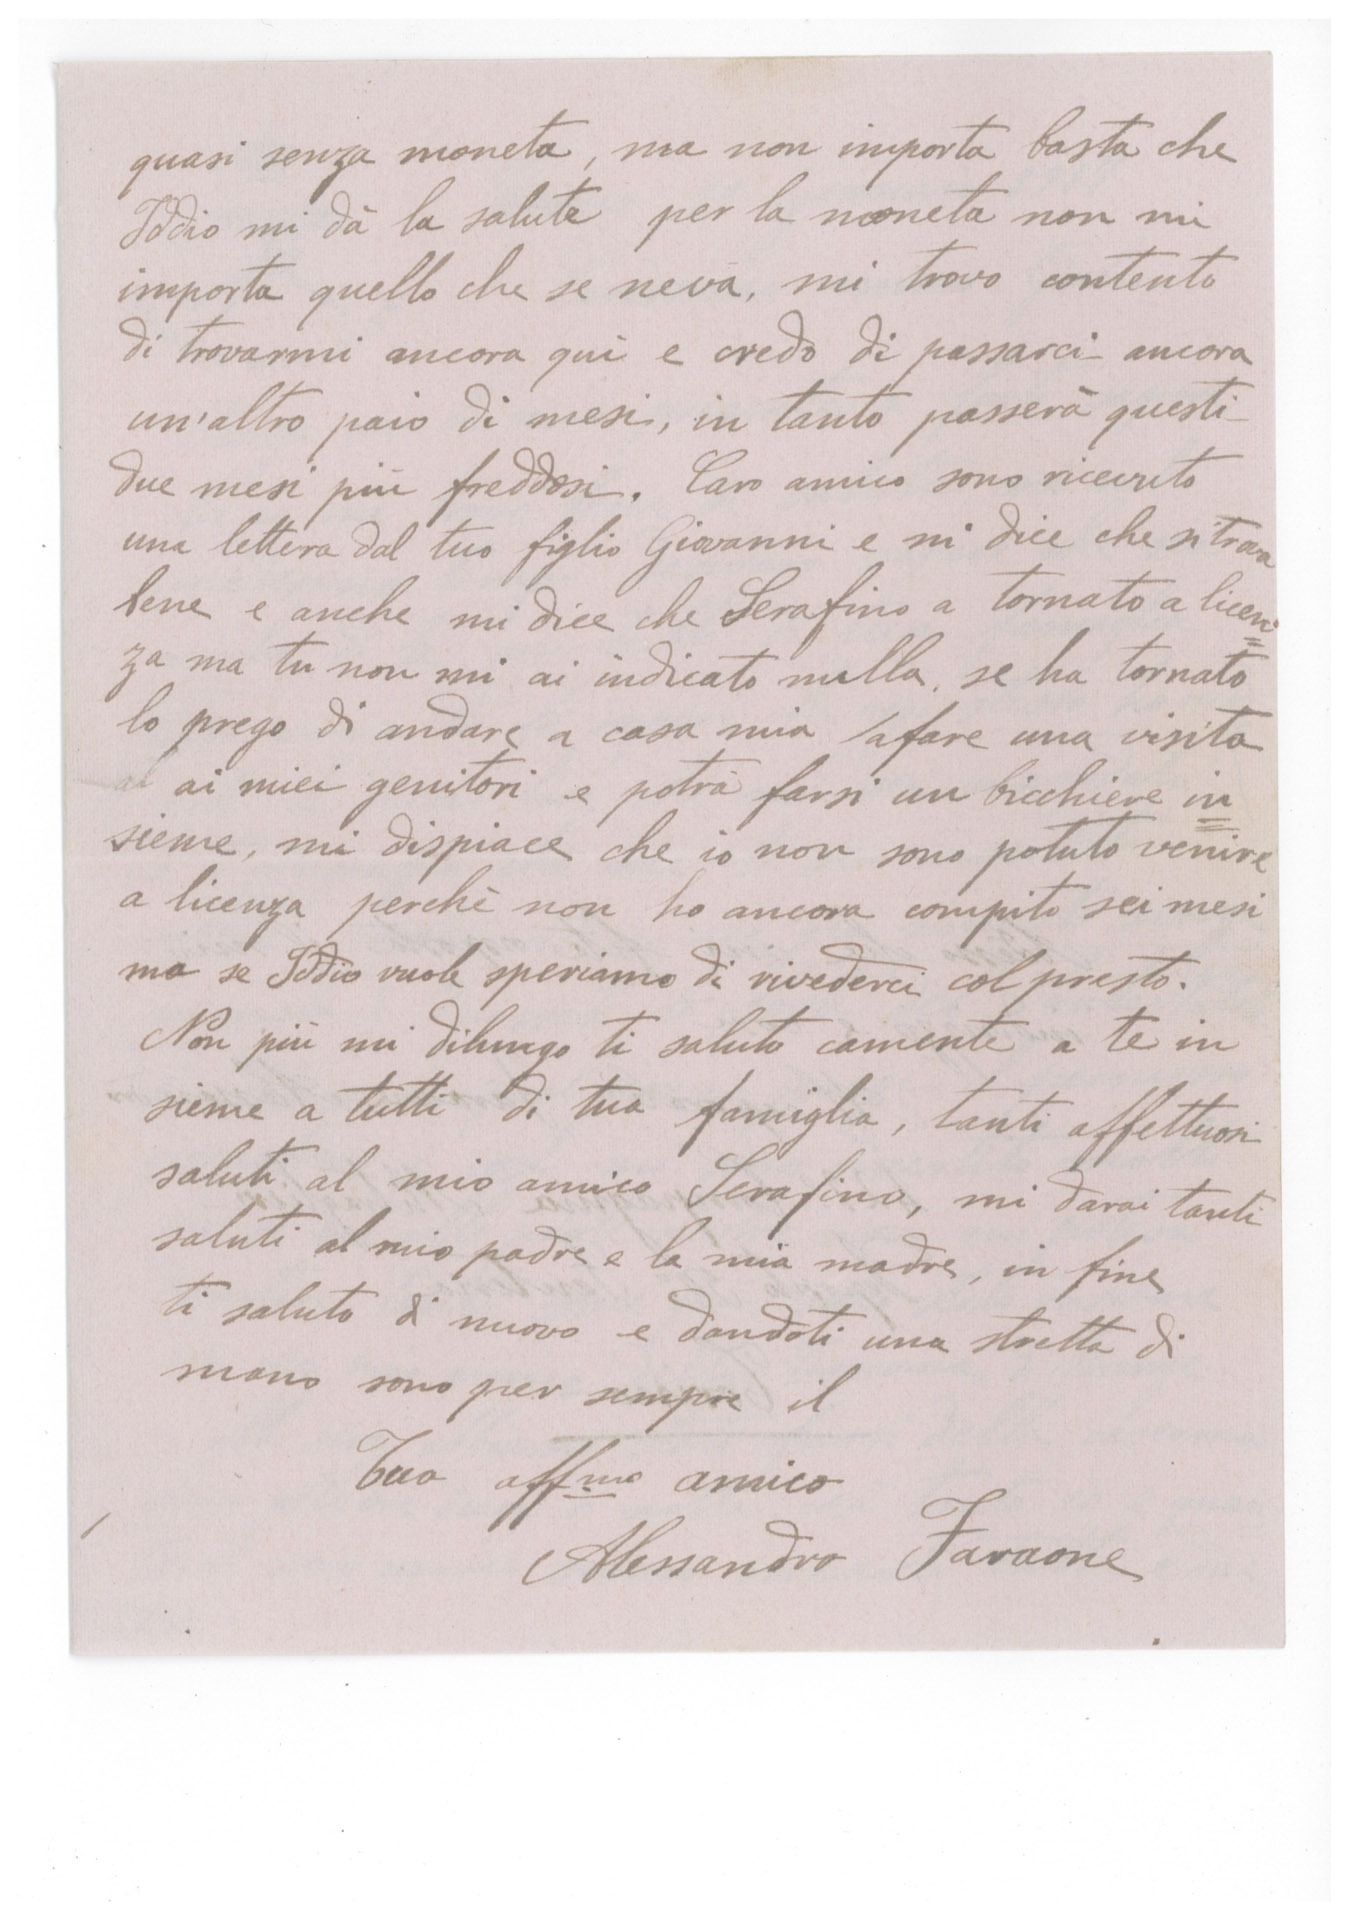 quasi senza moneta, ma non importa basta che
Iddio mi dà la salute per la moneta non mi
importa quello che se nevà, mi trovo contento
di trovarmi ancora quì e credo di passarci ancora
un'altro paio di mesi, in tanto passerà questi
due mesi più freddosi. Caro amico sono ricevuto
una lettera dal tuo figlio Giovanni e mi dice che si trova
bene e anche mi dice che Serafino a tornato a licen=
za ma tu non mi ai indicato nulla, se ha tornato
lo prego di andare a casa mia a fare una visita
ai miei genitori e potrà farsi un bicchiere in=
sieme, mi dispiace che io non sono potuto venire
a licenza perchè non ho ancora compito sei mesi
ma se Iddio vuole speriamo di rivederci col presto.
Non più mi dilungo ti saluto camente a te in
sieme a tutti di tua famiglia, tanti affettuosi
saluti al mio amico Serafino, mi darai tanti
saluti al mio padre e la mia madre, in fine
ti saluto di nuovo e dandoti una stretta di
mano sono per sempre il
Tuo affmo amico
Alessandro Faraone